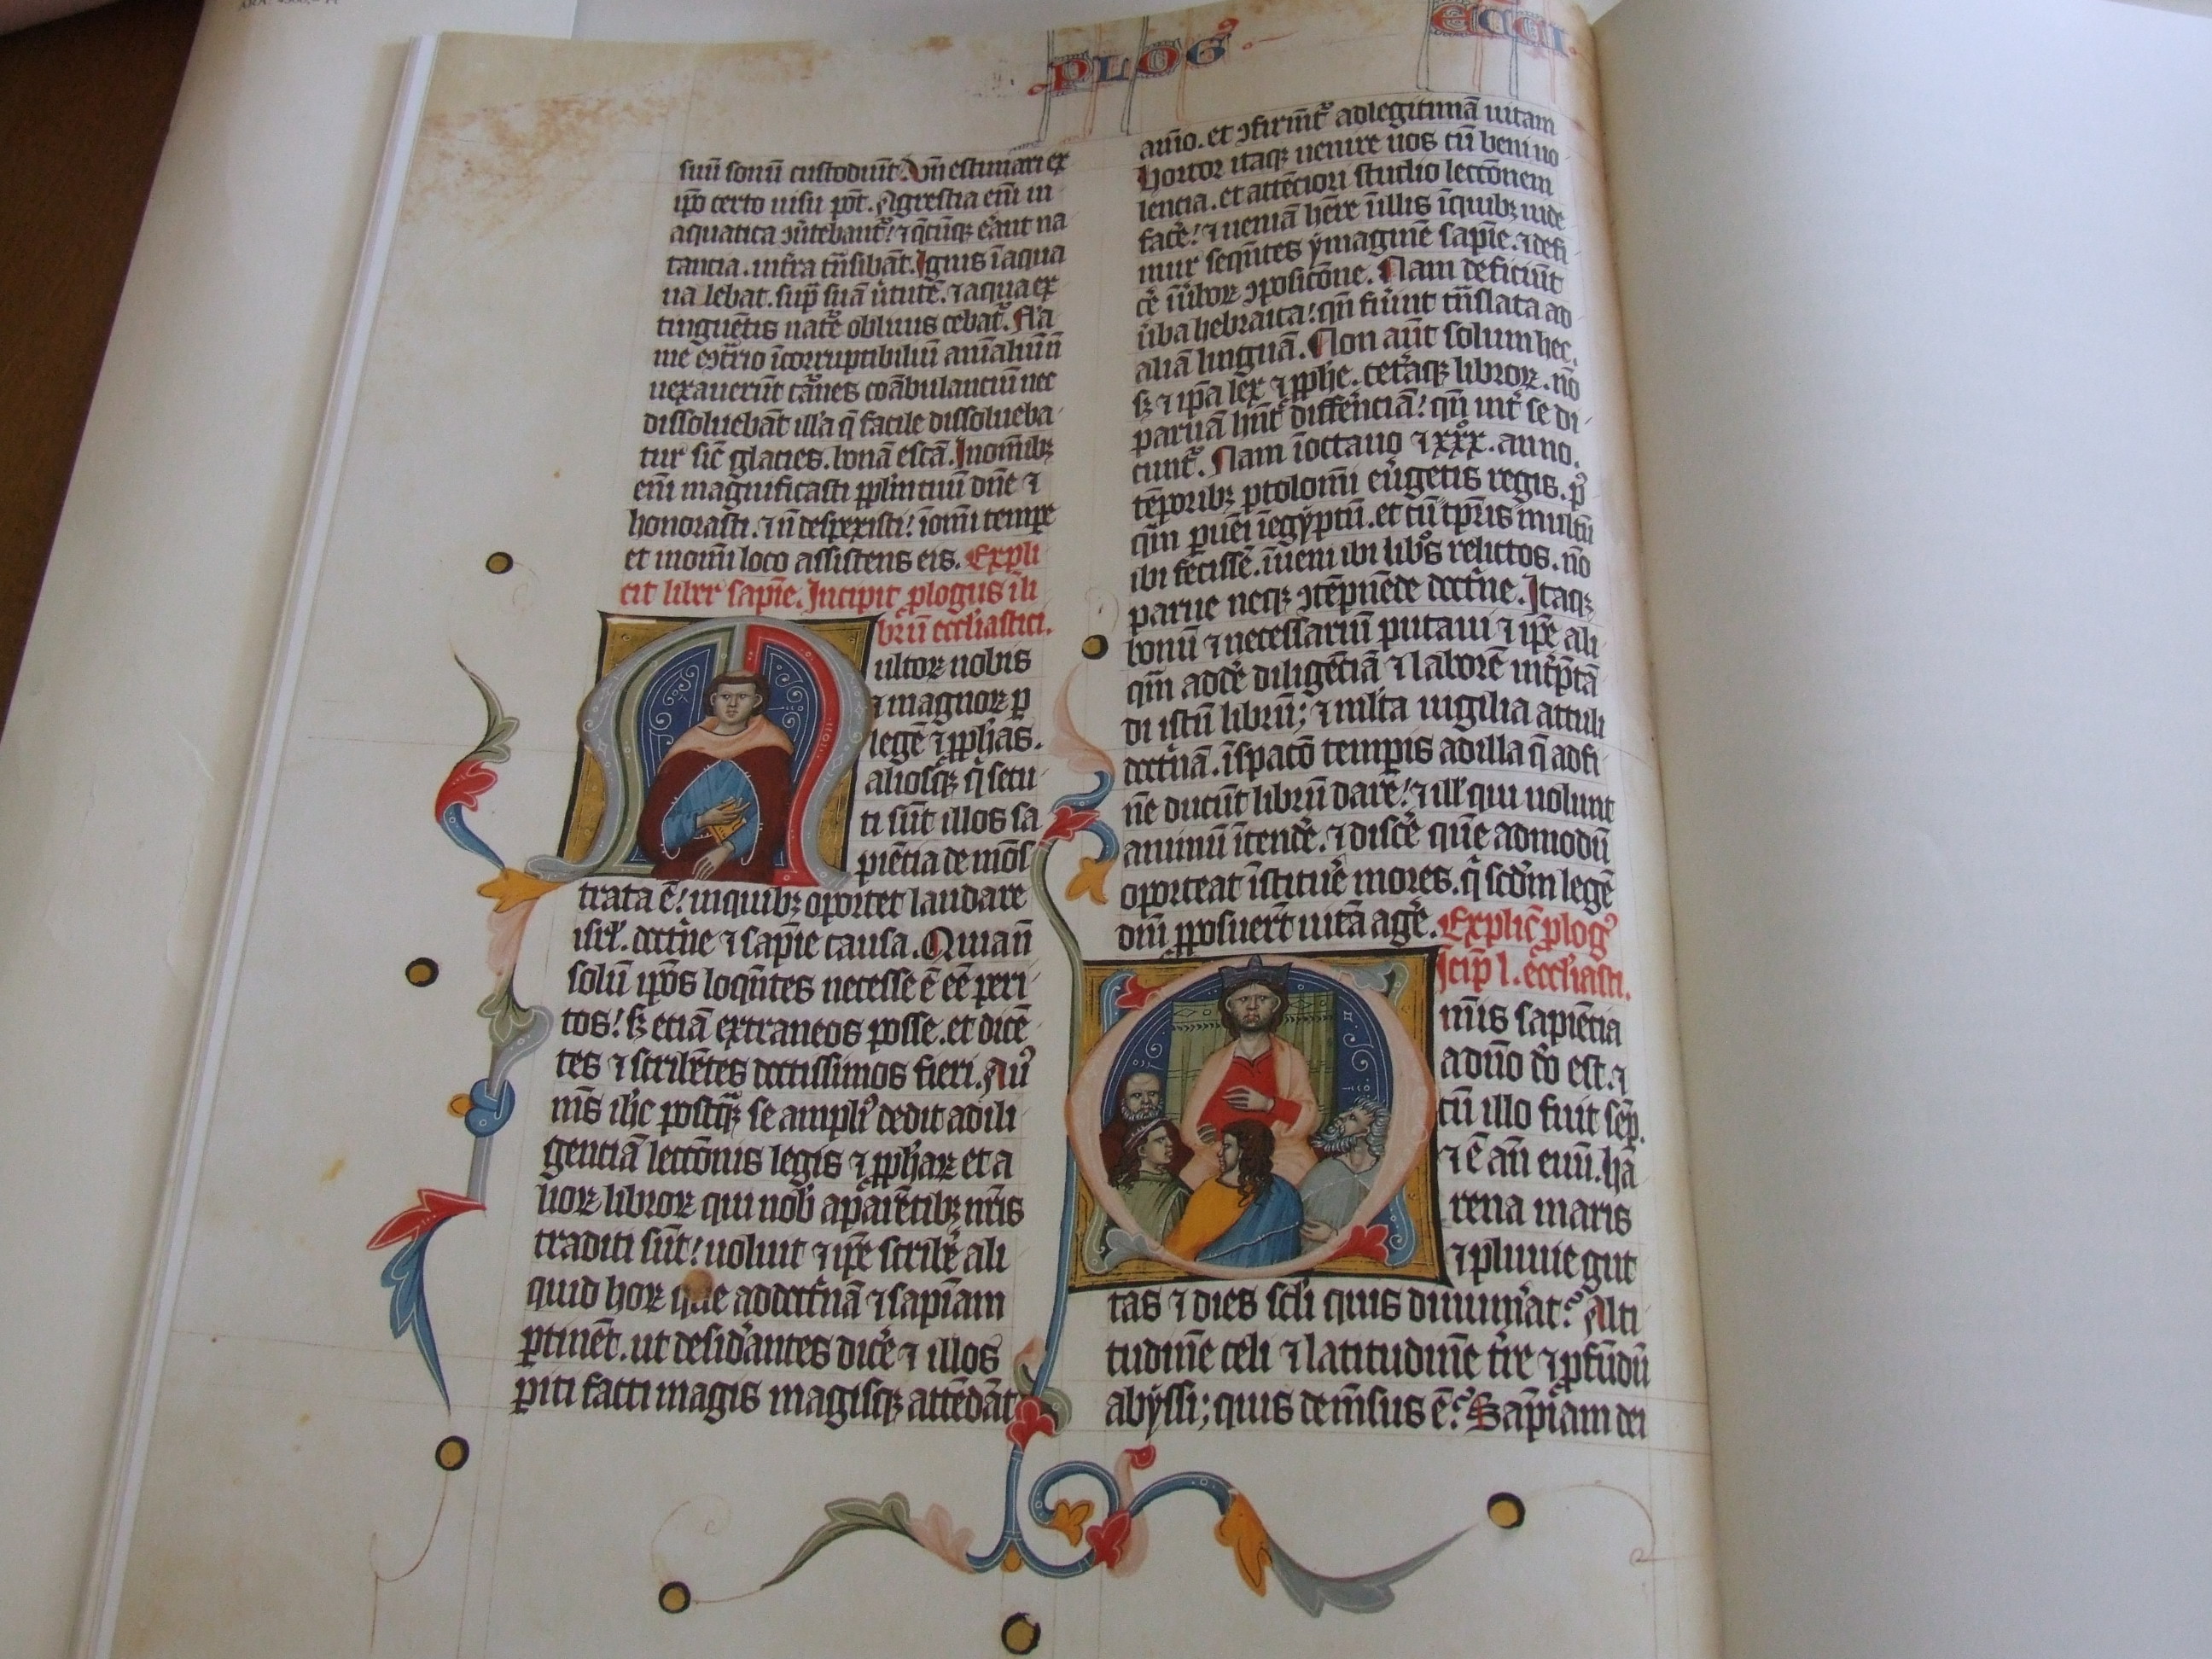 PLOG⁹
ECCI.
suū sonū custodiūt. Vn̄ estimari ex
ip̄o certo uisu pōt. Agrestia em̄ in
aquatica ↄūtebant᷑! ⁊ q̄cūq; eāūt na
tancia. infra t̄nsibāt. Ignis ī aqua
ua lebat. sup̄ suā ūtutē. ⁊ aqua ex
tinguētis nat̄e obliuis cebat᷑. Fla
me ↄt̄rio īcorruptibiliū aīaliū n̄
uexauerūt carnes coābulanciū nec
dissoluebāt illa q̄ facile dissolueba
tur sic̄ glacies. bonā escā. In om̄ib;
em̄ magnificasti pp̄l'm tuū dn̄e ⁊
honorasti. ⁊ n̄ despexisti! ī om̄i temp̄e
et in om̄i loco assistens eis. Expli
cit liber sapīe. Incipit plogus ī li
brū eccl'iastici.
ultor nobis
⁊ magnor ꝑ
legē ⁊ ꝓph'as.
aliosq; q̄ secu
ti sūt illos sa
piētia de mōs
trata ē! in quib; oportet laudare
isrl'. doctr̄ne ⁊ sapīe causa. Quia n̄
solū ip̄os loqn̄tes necesse ē eē peri
tos! s; etiā extraneos posse. et dicē
tes ⁊ scribētes doctissimos fieri. Auꝰ
m̄s ih'c postq̄; se ampliꝰ dedit ad ili
gentiā lectōnis legis ⁊ ꝓphar et a
lior libror qui nob' a parētib; nr̄is
traditi sūt! uoluit ⁊ ip̄e scrib'e ali
quid hor que ad doctr̄nā ⁊ sapīam
ꝑtinēt. ut desid'antes dic'e ⁊ illos
ꝑiti facti magis magisq; attēdāt
aīo. et ↄfirm̄t᷑ ad legitimā uitam
Hortor itaq; uenire uos cū beni uo
lencia. et attēciori studio lectōnem
fac'e! ⁊ ueniā h'ere ī illis ī quib; uide
mur seqn̄tes ymaginē sapīe. ⁊ defi
c'e ī ūbor ↄposicōne. Nam deficiūt
ūba hebraica! qn̄ fūint t̄nslata ad
aliā linguā. Non aūt solum hec.
s; ⁊ ip̄a lex ⁊ ꝓph'e. cet̄aq; libror. nō
paruā hn̄t diffēnciā! qn̄ int᷑ se di
cunt᷑. Nam ī octauo ⁊ xxxº. anno.
tēporib; ptolom̄i eūgetis regis. pꝰ
qm̄ ꝑuēi ī egyptū. et cū tp̄ris multū
ibi fecissē. īueni ibi lib'os relictos. nō
parue neq; ↄtēpnēde doctr̄ne. Itaq;
bonū ⁊ necessariū putaui ⁊ ip̄e ali
qm̄ add'e diligētiā ⁊ laborē int'p̄tā
di istū librū; ⁊ ml'ta uigilia attuli
doctr̄nā. ī spacō tempis ad illa q̄ ad fi
nē ducūt librū dare! ⁊ ill' qui uolunt
animū ītend'e. ⁊ disc'e quē admodū
oporteat īstitu'e mores. q̄ scd'm legē
dn̄i ꝓposuer̄t uitā ag'e. Explic̄ plogꝰ
Icip̄ l. eccl'iasti.
mn̄is sapiētia
a dn̄o d'o est. ⁊
cū illo fuit sēp.
⁊ ē an̄ euū. hā
rena maris
⁊ pluuie gut
tas ⁊ dies scl'i quis dinum'at? Alti
tudinē celi ⁊ latitudinē t're ⁊ ꝓfūdū
abyssi; quis dem̄sus ē? Sapīam dei